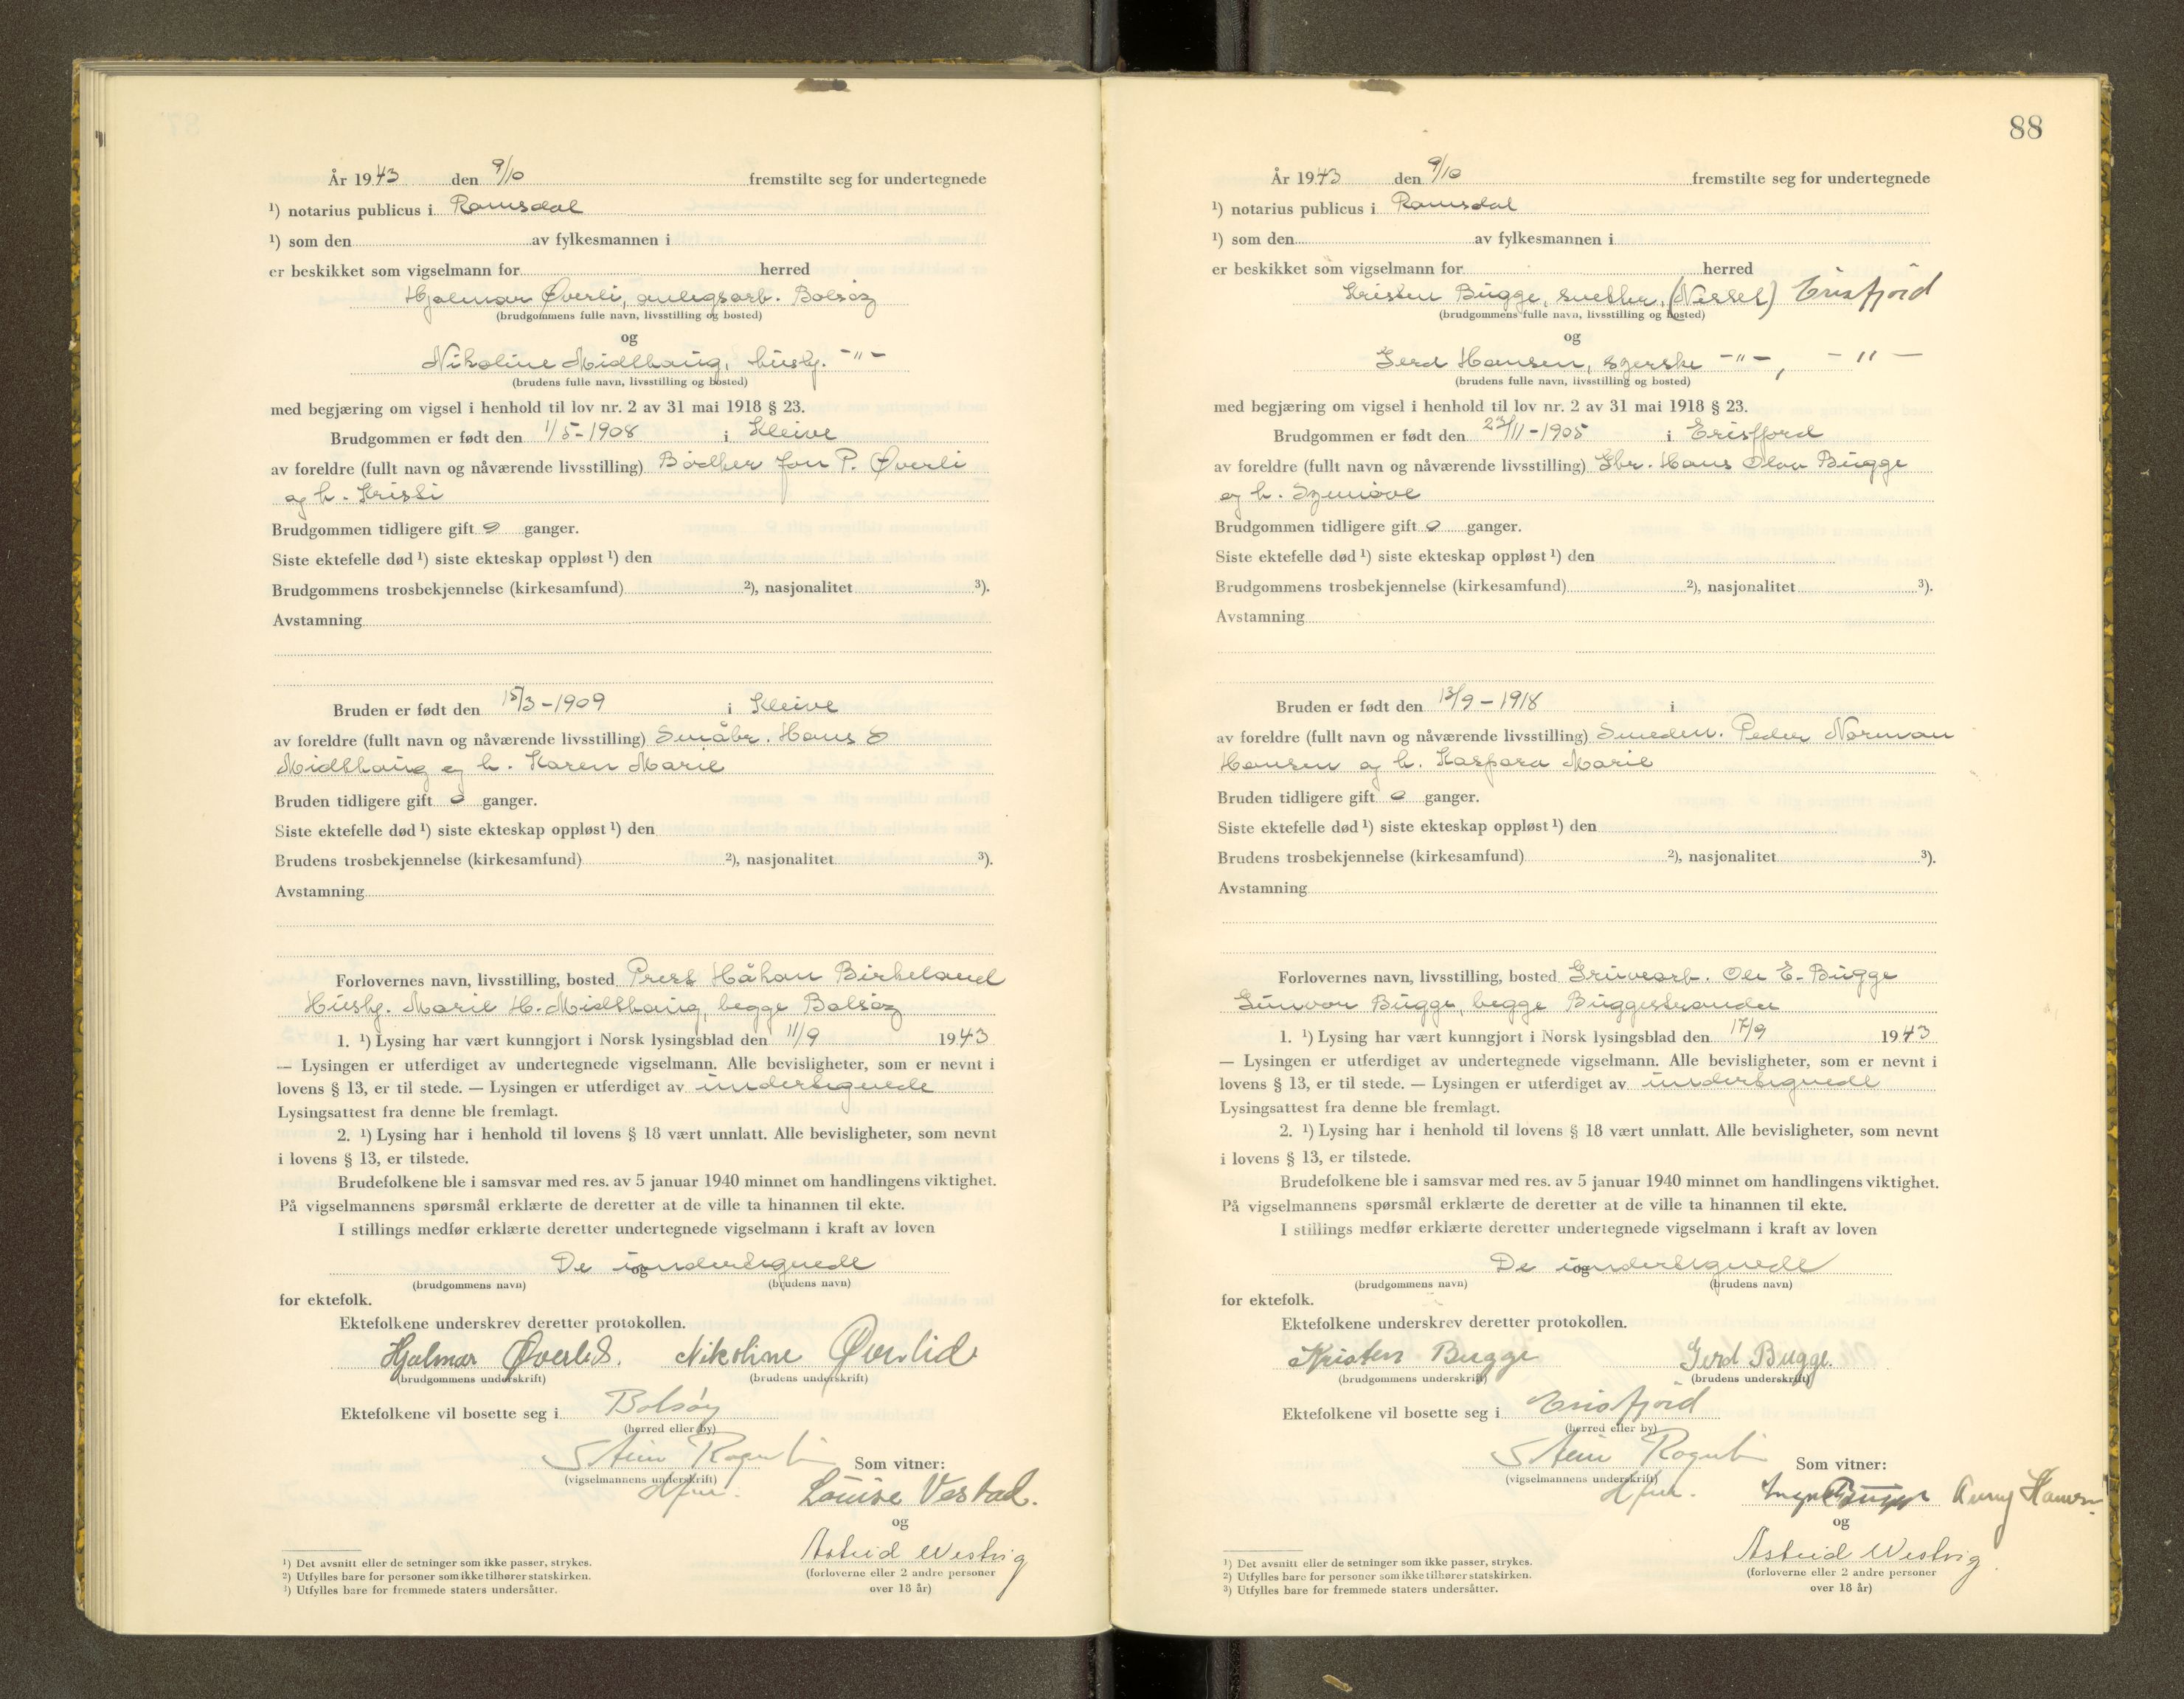 År 1943 den 9/10 fremstilte seg for undertegnede
¹) notarius publicus i Romsdal
¹) som den av fylkesmannen i
er beskikket som vigselmann for herred
Hjalmar Øverli, anlegsarb. Bolsøy
(brudgommens fulle navn, livsstilling og bosted)
og
Nikoline Midthaug, hush. -"-
(brudens fulle navn, livsstilling og bosted)
med begjæring om vigsel i henhold til lov nr. 2 av 31 mai 1918 § 23.
Brudgommen er født den 1/5-1908 i Kleive
av foreldre (fullt navn og nåværende livsstilling) Bødker Jon P. Øverli
og h. Kristi
Brudgommen tidligere gift 0 ganger.
Siste ektefelle død ¹) siste ekteskap oppløst ¹) den
Brudgommens trosbekjennelse (kirkesamfund) ²), nasjonalitet ³).
Avstamning
Bruden er født den 15/3-1909 i Kleive
av foreldre (fullt navn og nåværende livsstilling) Småbr. Hans O
Midthaug og h. Karen Marie
Bruden tidligere gift 0 ganger.
Siste ektefelle død ¹) siste ekteskap oppløst ¹) den
Brudens trosbekjennelse (kirkesamfund) ²), nasjonalitet ³).
Avstamning
Forlovernes navn, livsstilling, bosted Prest Håkon Birkeland
Hush. Marie H. Midthaug, begge Bolsøy
1. ¹) Lysing har vært kunngjort i Norsk lysingsblad den 11/9 1943
— Lysingen er utferdiget av undertegnede vigselmann. Alle bevisligheter, som er nevnt i
lovens § 13, er til stede. — Lysingen er utferdiget av undertegnede
Lysingsattest fra denne ble fremlagt.
2. ¹) Lysing har i henhold til lovens § 18 vært unnlatt. Alle bevisligheter, som nevnt
i lovens § 13, er tilstede.
Brudefolkene ble i samsvar med res. av 5 januar 1940 minnet om handlingens viktighet.
På vigselmannens spørsmål erklærte de deretter at de ville ta hinannen til ekte.
I stillings medfør erklærte deretter undertegnede vigselmann i kraft av loven
De undertegnede
og
(brudgommens navn) (brudens navn)
for ektefolk.
Ektefolkene underskrev deretter protokollen.
Hjalmar Øverlid. Nikoline Øverlid
(brudgommens underskrift) (brudens underskrift)
Ektefolkene vil bosette seg i Bolsøy
(herred eller by)
Stein Som vitner:
(vigselmannens underskrift)
Louise Vestad.
og
Astrid Westvig
(forloverne eller 2 andre personer
over 18 år)
¹) Det avsnitt eller de setninger som ikke passer, strykes.
²) Utfylles bare for personer som ikke tilhører statskirken.
³) Utfylles bare for fremmede staters undersåtter.
88
År 1943 den 9/10 fremstilte seg for undertegnede
¹) notarius publicus i Romsdal
¹) som den av fylkesmannen i
er beskikket som vigselmann for herred
Kristen Bugge, snekker, (Nesset) Erisfjord
(brudgommens fulle navn, livsstilling og bosted)
og
Gerd Hansen, syerske -"-, -"-
(brudens fulle navn, livsstilling og bosted)
med begjæring om vigsel i henhold til lov nr. 2 av 31 mai 1918 § 23.
Brudgommen er født den 23/11-1905 i Erisfjord
av foreldre (fullt navn og nåværende livsstilling) Gbr. Hans Olav Bugge
og h. Synnøve
Brudgommen tidligere gift 0 ganger.
Siste ektefelle død ¹) siste ekteskap oppløst ¹) den
Brudgommens trosbekjennelse (kirkesamfund) ²), nasjonalitet ³).
Avstamning
Bruden er født den 13/9-1918 i
av foreldre (fullt navn og nåværende livsstilling) Smeden. Peder Norman
Hansen og h. Kaspara Marie
Bruden tidligere gift 0 ganger.
Siste ektefelle død ¹) siste ekteskap oppløst ¹) den
Brudens trosbekjennelse (kirkesamfund) ²), nasjonalitet ³).
Avstamning
Forlovernes navn, livsstilling, bosted Gruvearb. Ole E. Bugge
Gunvor Bugge, begge Buggestranda
1. ¹) Lysing har vært kunngjort i Norsk lysingsblad den 17/9 1943
— Lysingen er utferdiget av undertegnede vigselmann. Alle bevisligheter, som er nevnt i
lovens § 13, er til stede. — Lysingen er utferdiget av undertegnede
Lysingsattest fra denne ble fremlagt.
2. ¹) Lysing har i henhold til lovens § 18 vært unnlatt. Alle bevisligheter, som nevnt
i lovens § 13, er tilstede.
Brudefolkene ble i samsvar med res. av 5 januar 1940 minnet om handlingens viktighet.
På vigselmannens spørsmål erklærte de deretter at de ville ta hinannen til ekte.
I stillings medfør erklærte deretter undertegnede vigselmann i kraft av loven
De undertegnede
og
(brudgommens navn) (brudens navn)
for ektefolk.
Ektefolkene underskrev deretter protokollen.
Kristen Bugge Gerd Bugge.
(brudgommens underskrift) (brudens underskrift)
Ektefolkene vil bosette seg i Erisfjord
(herred eller by)
Stein Som vitner:
(vigselmannens underskrift)
Bugge Hansen
og
Astrid Westvig
(forloverne eller 2 andre personer
over 18 år)
¹) Det avsnitt eller de setninger som ikke passer, strykes.
²) Utfylles bare for personer som ikke tilhører statskirken.
³) Utfylles bare for fremmede staters undersåtter.